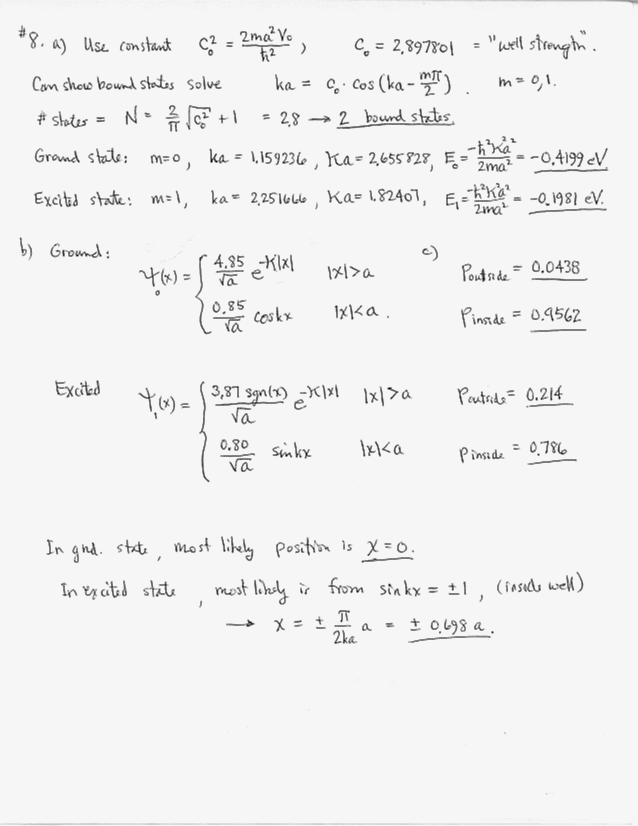 #8. a) Use constant C₀² = 2ma²V₀/ħ², C₀ = 2.897801 = "well strength".
Can show bound states solve ka = c₀ · cos(ka - mπ/2). m = 0, 1.
# states = N = 2/π √C₀² + 1 = 2.8 → 2 bound states.
Ground state: m=0, ka = 1.159236, Ka = 2.655828, E₀ = -ħ²K²a²/2ma² = -0.4199 eV
Excited state: m=1, ka = 2.251666, Ka = 1.82407, E₁ = -ħ²K²a²/2ma² = -0.1981 eV.
b) Ground: c)
Ψ₀(x) = { 4.85/√a e^-K|x| |x|>a Poutside = 0.0438
0.85/√a coskx |x|<a. Pinside = 0.9562
Excited Ψ₁(x) = { 3.87 sgn(x)/√a e^-K|x| |x|>a Poutside = 0.214
0.80/√a sinkx |x|<a Pinside = 0.786
In gnd. state, most likely position is x=0.
In excited state, most likely is from sinkx = ±1, (inside well)
→ x = ± π/2ka a = ± 0.698 a.